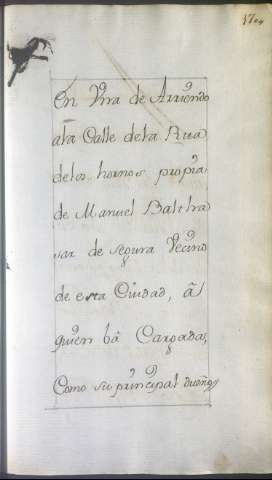 En Vira de Arriendo
ala Calle dela Rua
delos hornos propia
de Manuel Baltha
sar de segura Vecino
de esta Ciudad, â
quien bâ Cargada,
Como su principal dueño,